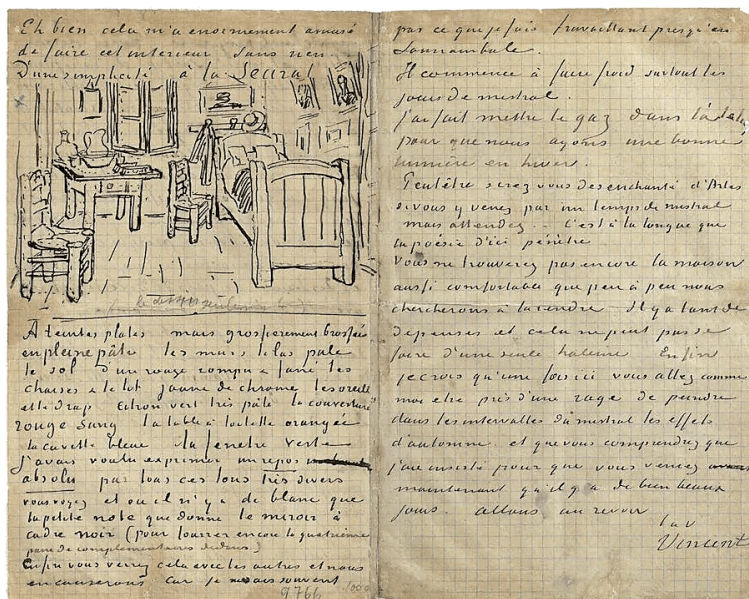 Eh bien cela m'a enormement amusé
de faire cet interieur sans rien.
D'une simplicité à la Seurat
À teintes plates mais grossierement brossées
en pleine pâte les murs lilas pale
le sol d'un rouge rompu & fané les
chaises & le lit jaune de chrome les oreillers
et le drap citron vert très pâle la couverture
rouge sang la table à toilette orangée
la cuvette bleue la fenetre verte
j'avais voulu exprimer un repos
absolu par tous ces tons très divers
vous voyez et où il n'y a de blanc que
la petite note que donne le miroir à
cadre noir (pour fourrer encore la quatrième
paire de complementaires dedans.)
Enfin vous verrez cela avec les autres et nous
en causerons car je ne sais souvent
9766
pas ce que je fais travaillant presqu'en
somnambule.
Il commence à faire froid surtout les
jours de mistral.
j'ai fait mettre le gaz dans l'atelier
pour que nous ayons une bonne
lumière en hiver.
Peutêtre serez vous desenchanté d'Arles
si vous y venez par un temps de mistral
mais attendez.. C'est à la longue que
la poésie d'ici pénètre
Vous ne trouverez pas encore la maison
aussi comfortable que peu à peu nous
chercherons à la rendre Il y a tant de
depenses et cela ne peut pas se
faire d'une seule haleine Enfin
je crois qu'une fois ici vous allez comme
moi etre pris d'une rage de peindre
dans les intervalles du mistral les effets
d'automne. et que vous comprendrez que
j'aie insisté pour que vous veniez
maintenant qu'il y a de bien beaux
jours. allons au revoir
t.à v
Vincent